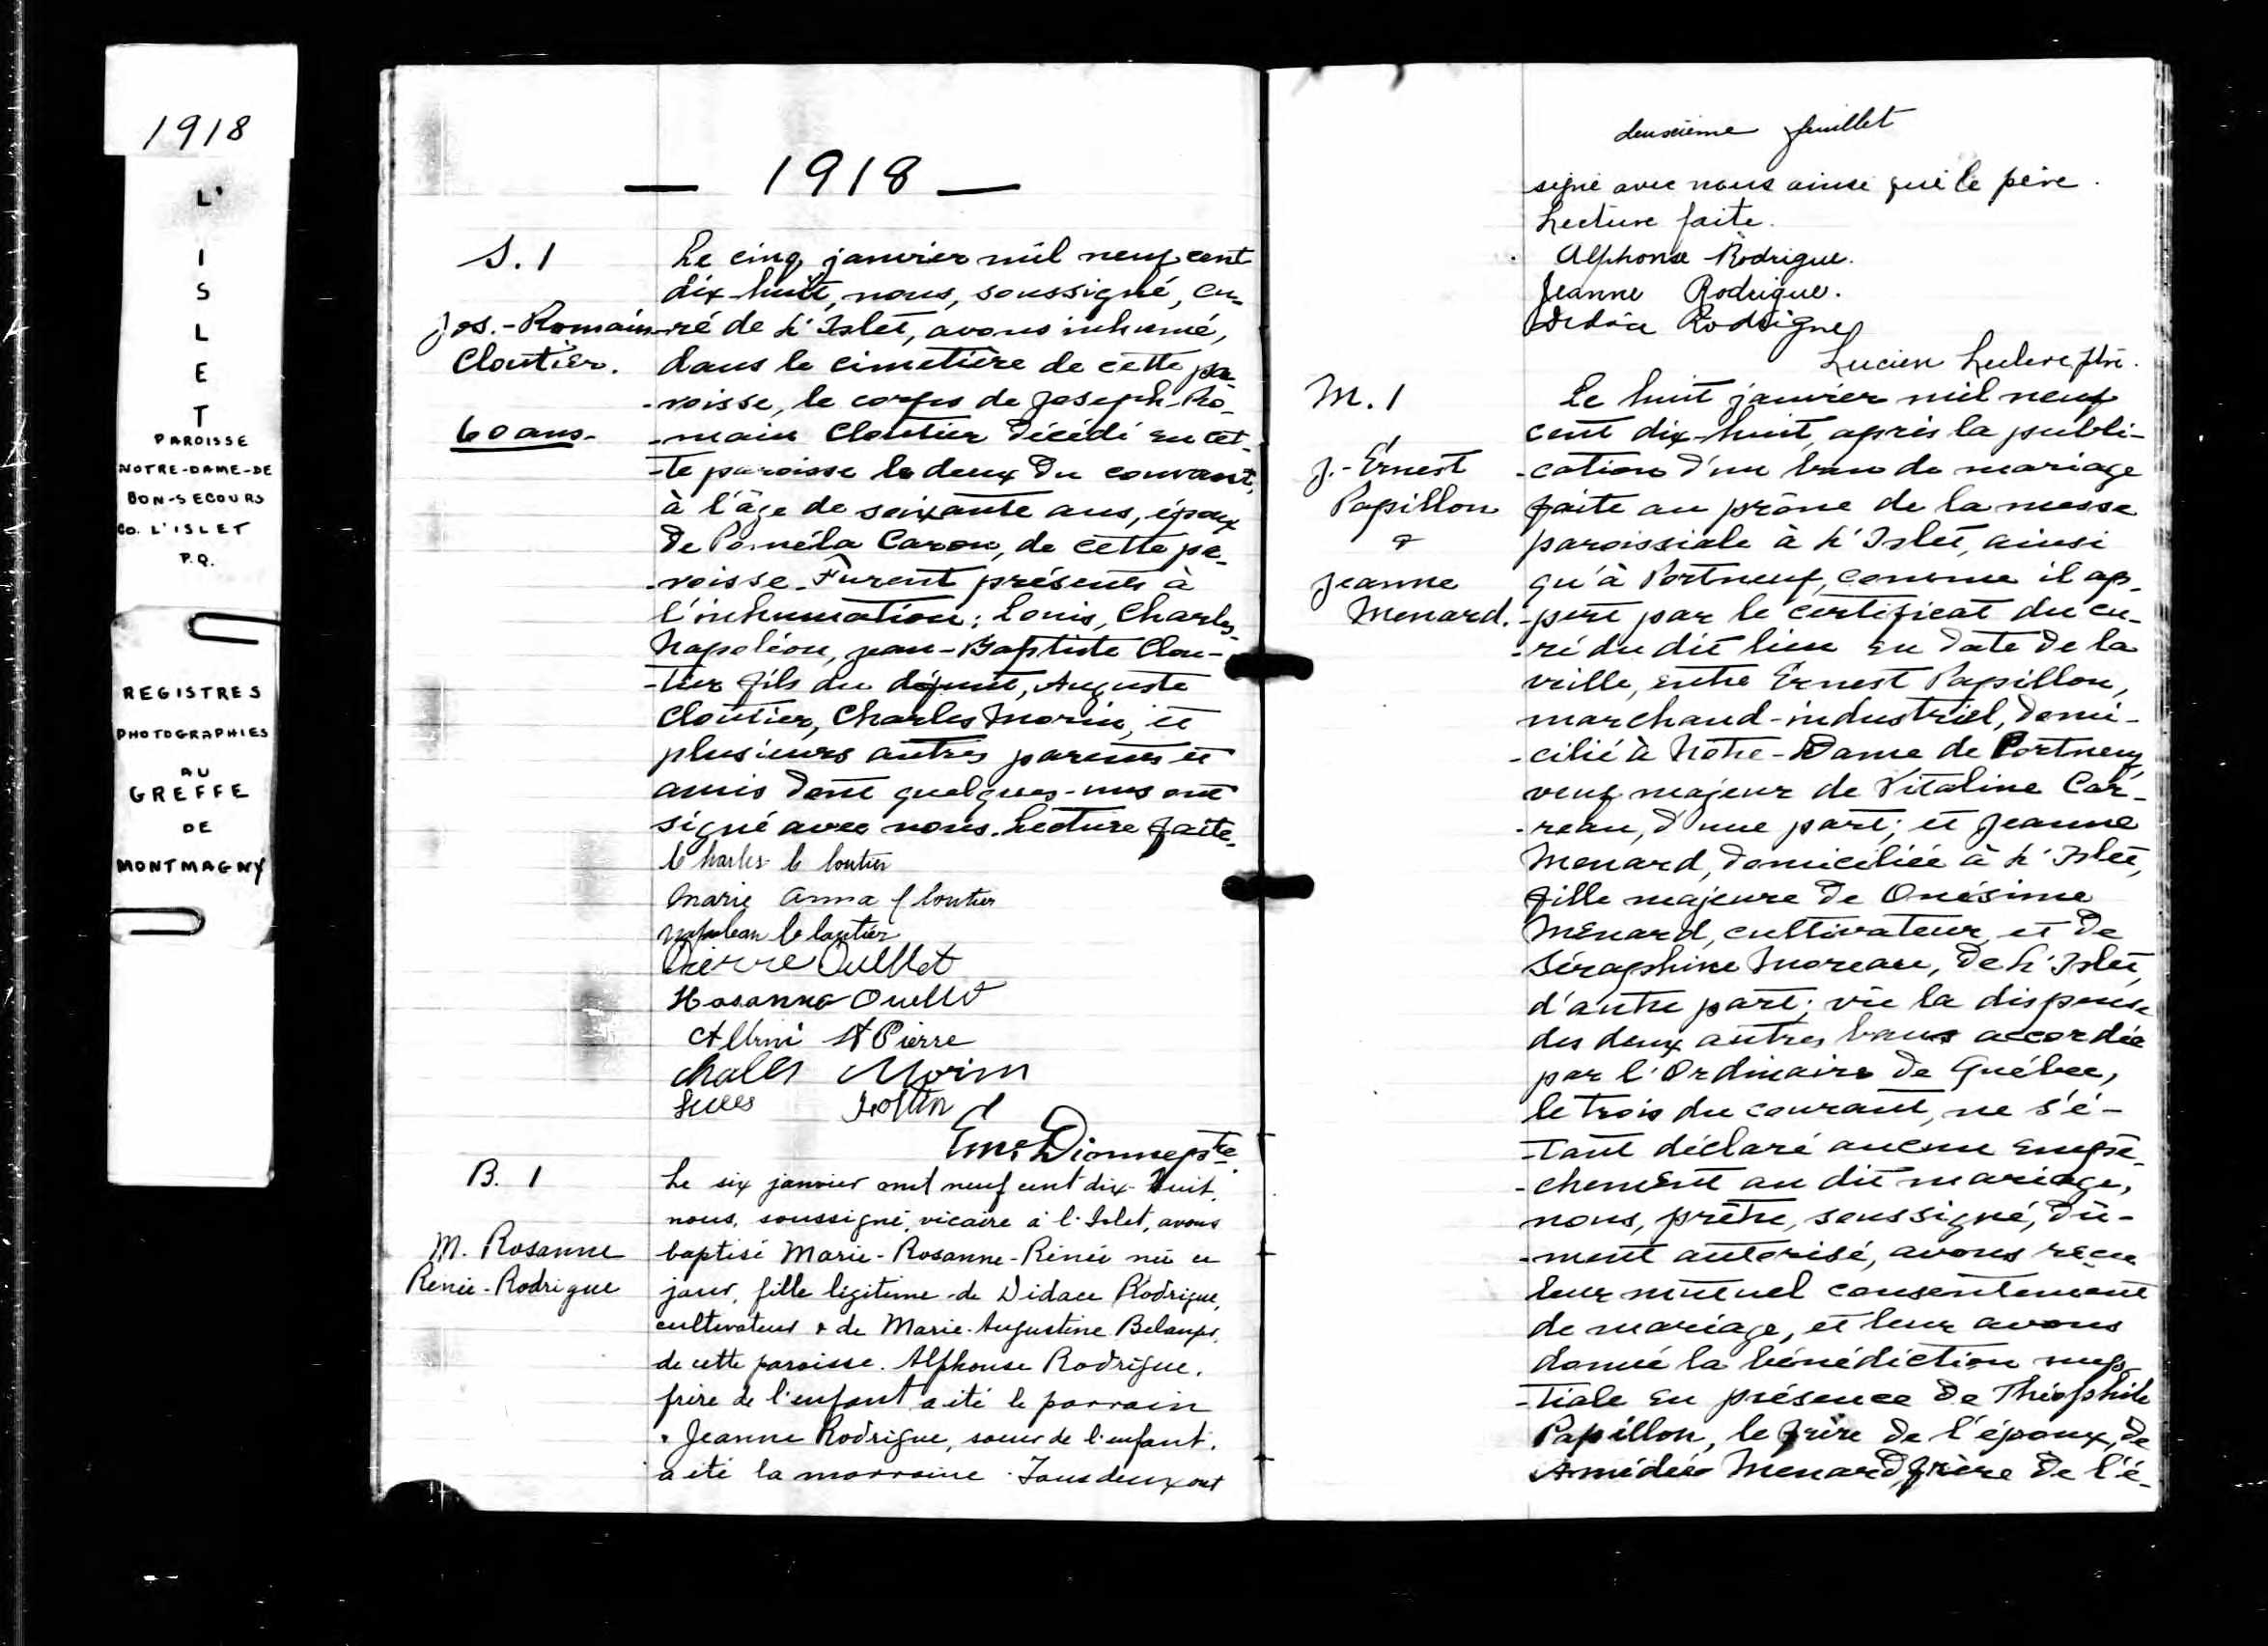 1918
L'
I
S
L
E
T
PAROISSE
NOTRE-DAME-DE
BON-SECOURS
CO. L'ISLET
P.Q.
REGISTRES
PHOTOGRAPHIES
AU
GREFFE
DE
MONTMAGNY
— 1918 —
S. 1
Jos.-Romain
Cloutier.
60 ans.
Le cinq janvier mil neuf cent
dix-huit, nous, soussigné, cu-
-ré de L'Islet, avons inhumé,
dans le cimetière de cette pa-
-roisse, le corps de Joseph-Ro-
-main Cloutier décédé en cet-
-te paroisse le deux du courant,
à l'âge de soixante ans, époux
de Paméla Caron, de cette pa-
-roisse. Furent présents à
l'inhumation: Louis, Charles,
Napoléon, Jean-Baptiste Clou-
-tier fils du défunt, Auguste
Cloutier, Charles Morin, et
plusieurs autres parents et
amis dont quelques-uns ont
signé avec nous. Lecture faite.
Charles Cloutier
Marie Anna Cloutier
Napoléan Cloutier
Pierre Ouellet
Hosanna Ouellet
St Pierre
Morin
Dionne ptre
B. 1
M. Rosanne
Renée-Rodrigue
Le six janvier mil neuf cent dix-huit,
nous, soussigné, vicaire à l'Islet, avons
baptisé Marie-Rosanne-Rénée née ce
jour, fille légitime de Didace Rodrigue,
cultivateur & de Marie-Augustine Belanger,
de cette paroisse. Alphonse Rodrigue,
frère de l'enfant a été le parrain
& Jeanne Rodrigue, soeur de l'enfant,
a été la marraine. Tous deux ont
deuxième feuillet
signé avec nous ainsi que le père.
Lecture faite.
Alphonse Rodrigue.
Jeanne Rodrigue.
Rodrigue
Lucien Leclerc ptre.
M. 1
J.-Ernest
Papillon
&
Jeanne
Menard.
Le huit janvier mil neuf
cent dix-huit, après la publi-
-cation d'un ban de mariage
faite au prône de la messe
paroissiale à L'Islet, ainsi
qu'à Portneuf, comme il ap-
-pert par le certificat du cu-
-ré du dit lieu en date de la
veille, entre Ernest Papillon,
marchand-industriel, domi-
-cilié à Notre-Dame de Portneuf
veuf majeur de Vitaline Car-
-reau, d'une part; et Jeanne
Menard, domiciliée à L'Islet,
fille majeure de Onésime
Ménard, cultivateur, et de
Séraphine Moreau, de L'Islet,
d'autre part; vu la dispense
des deux autres bans accordée
par l'Ordinaire de Québec,
le trois du courant, ne s'é-
-tant déclaré aucun empê-
-chement au dit mariage,
nous, prêtre, soussigné, dû-
-ment autorisé, avons reçu
leur mutuel consentement
de mariage, et leur avons
donné la bénédiction nup-
-tiale en présence de Théophile
Papillon, le frère de l'époux, de
Amédée Menard, frère de l'é-